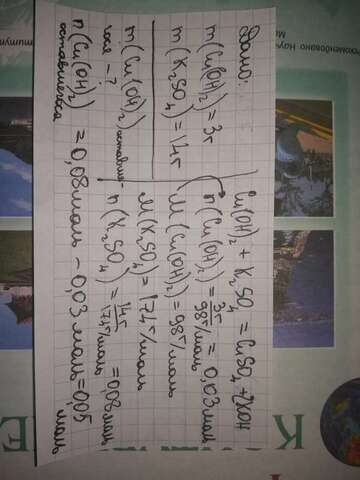 Дано:
m(Cu(OH)₂) = 3г
m(K₂SO₄) = 14г
m(Cu(OH)₂) оставше-
гося - ?
Cu(OH)₂ + K₂SO₄ = CuSO₄ + 2KOH
n(Cu(OH)₂) = 3г / 98г/моль = 0,03моль
M(Cu(OH)₂) = 98г/моль
M(K₂SO₄) = 174г/моль
n(K₂SO₄) = 14г / 174г/моль = 0,08моль
n(Cu(OH)₂) = 0,08моль - 0,03моль = 0,05 моль
оставшегося